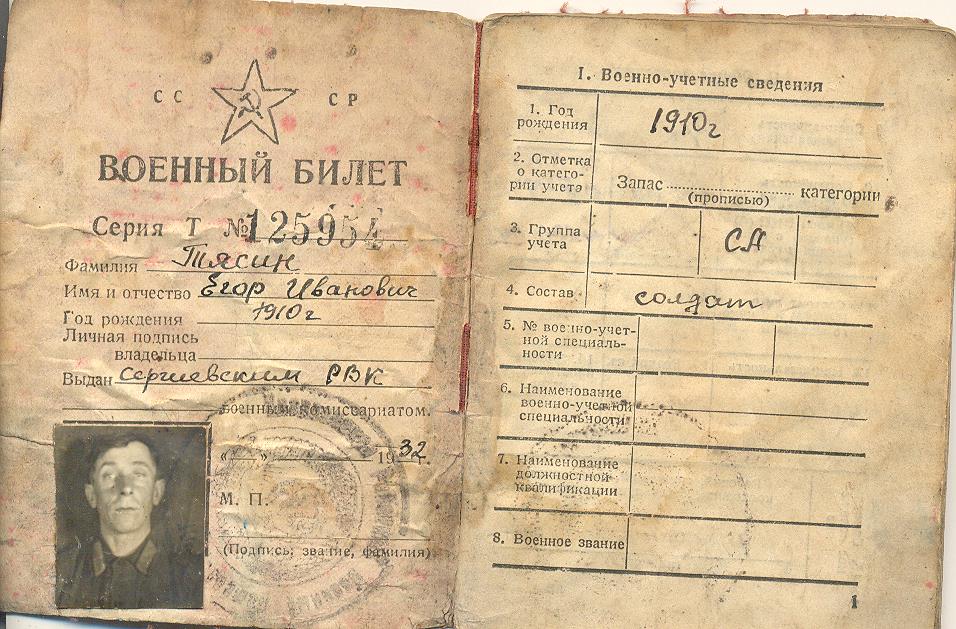 СС СР
ВОЕННЫЙ БИЛЕТ
Серия Т № 125954
Фамилия Тясин
Имя и отчество Егор Иванович
Год рождения 1910 г
Личная подпись
владельца
Выдан Сергиевским РВК
военным комиссариатом.
« » 1932 г.
М. П.
(Подпись, звание, фамилия)
I. Военно-учетные сведения
1. Год
рождения
1910 г
2. Отметка
о катего-
рии учета
Запас категории
(прописью)
3. Группа
учета
СА
4. Состав солдат
5. № военно-учет-
ной специаль-
ности
6. Наименование
военно-учетной
специальности
7. Наименование
должностной
квалификации
8. Военное звание
1